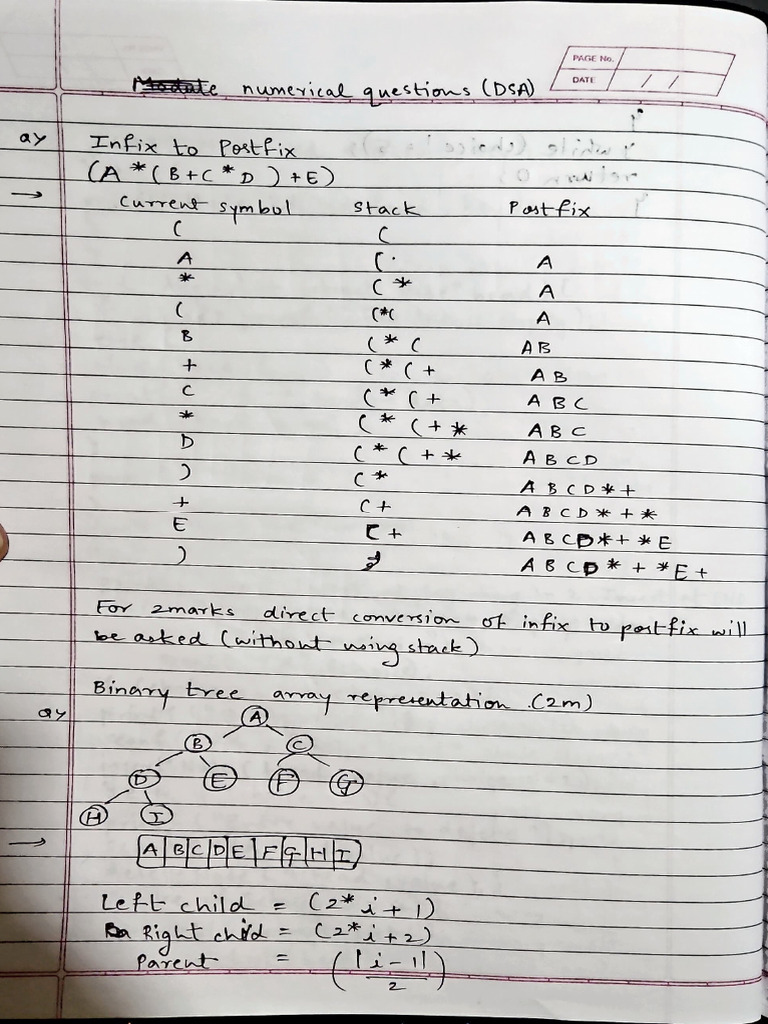 PAGE No.
DATE / /
numerical questions (DSA)
Infix to Postfix
(A * (B+C*D) + E)
→ Current symbol Stack Postfix
( (
A ( A
* (* A
( (*( A
B (*( AB
+ (*(+ AB
C (*(+ ABC
* (*(+* ABC
D (*(+* ABCD
) (* ABCD*+
+ (+ ABCD*+*
E (+ ABCD*+*E
) ABCD*+*E+
For 2marks direct conversion of infix to postfix will
be asked (without using stack)
Binary tree array representation. (2m)
A
B C
D E F G
H I
→ A B C D E F G H I
Left child = (2*i+1)
Right child = (2*i+2)
Parent = (|i-1|/2)